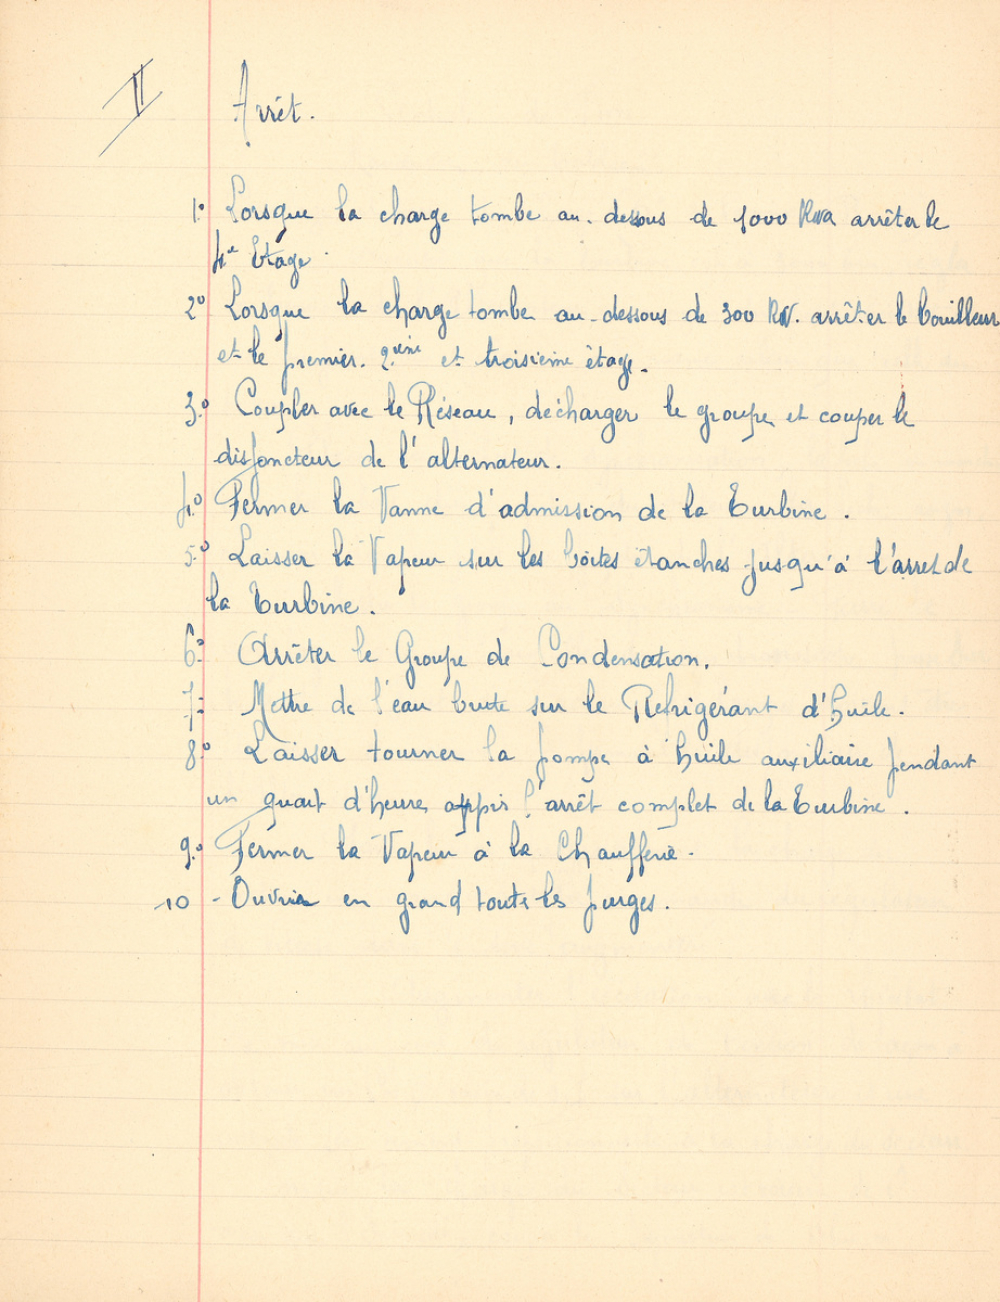 II Arrêt.
1º Lorsque la charge tombe au-dessous de 1000 Kva arrêter le
4e Etage.
2º Lorsque la charge tombe au-dessous de 300 KW. arrêter le bouilleur
et le premier. 2eme et troisième étage.
3º Coupler avec le Réseau, décharger le groupe et couper le
disjoncteur de l'alternateur.
4º Fermer la Vanne d'admission de la Turbine.
5º Laisser la Vapeur sur les boites étanches jusqu'à l'arret de
la Turbine.
6º Arrêter le Groupe de Condensation.
7º Mettre de l'eau brute sur le Refrigérant d'huile.
8º Laisser tourner la pompe à huile auxiliaire pendant
un quart d'heure après l'arrêt complet de la Turbine.
9º Fermer la Vapeur à la Chaufferie.
10 - Ouvrir en grand toutes les purges.